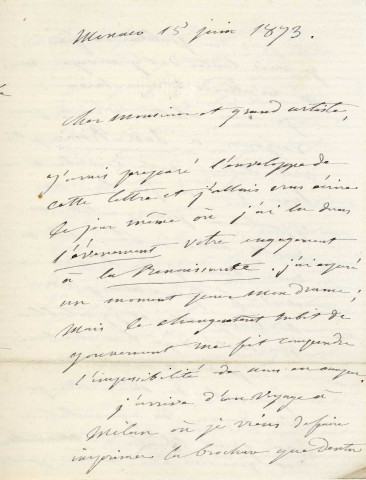 Monaco 15 juin 1873.
Cher monsieur et grand artiste,
j'avais préparé l'enveloppe de
cette lettre et j'allais vous écrire
le jour même où j'ai lu dans
l'évènement votre engagement
à la Renaissance. j'ai espéré
un moment pour mon drame ;
Mais le changement subit de
gouvernement me fit comprendre
l'impossibilité de nous en
j'arrive d'un voyage à
Milan où je viens de faire
imprimer la brochure que